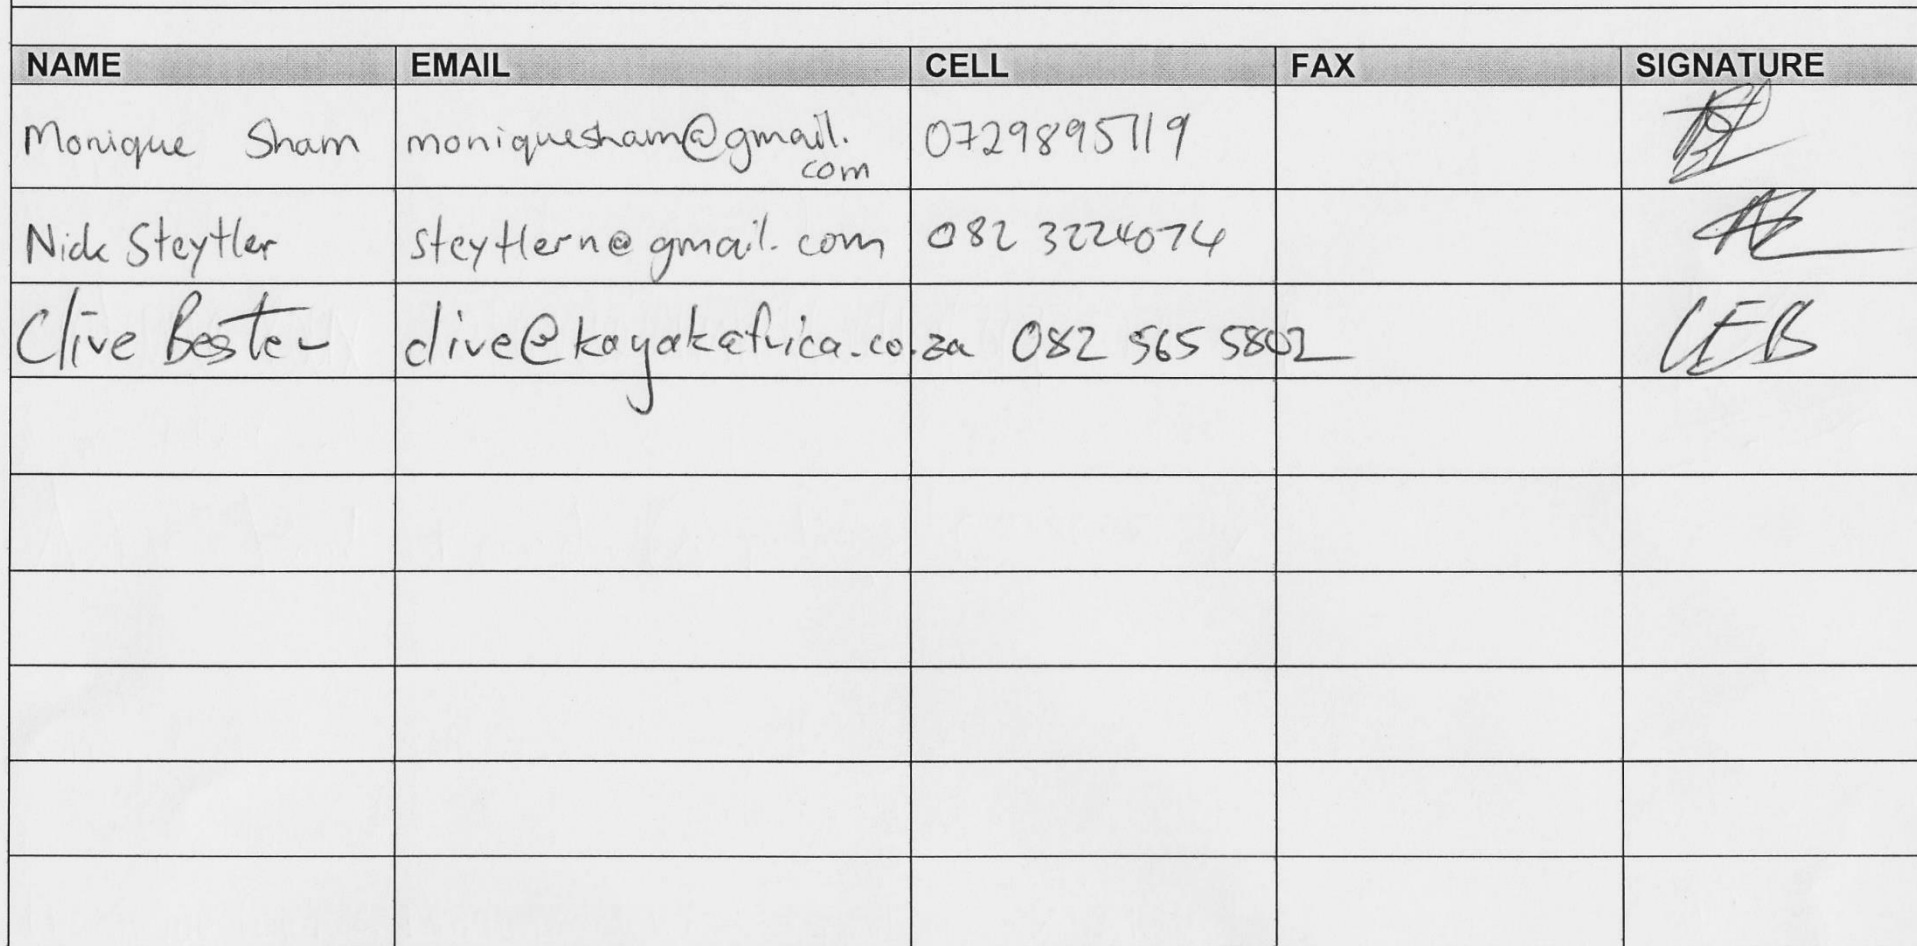 NAME EMAIL CELL FAX SIGNATURE
Monique Sham moniquesham@gmail. 0729895719
com
Nick Steytler steytlern@gmail.com 082 3224074
Clive Bester clive@kayakafrica.co.za 082 565 5802 CEB